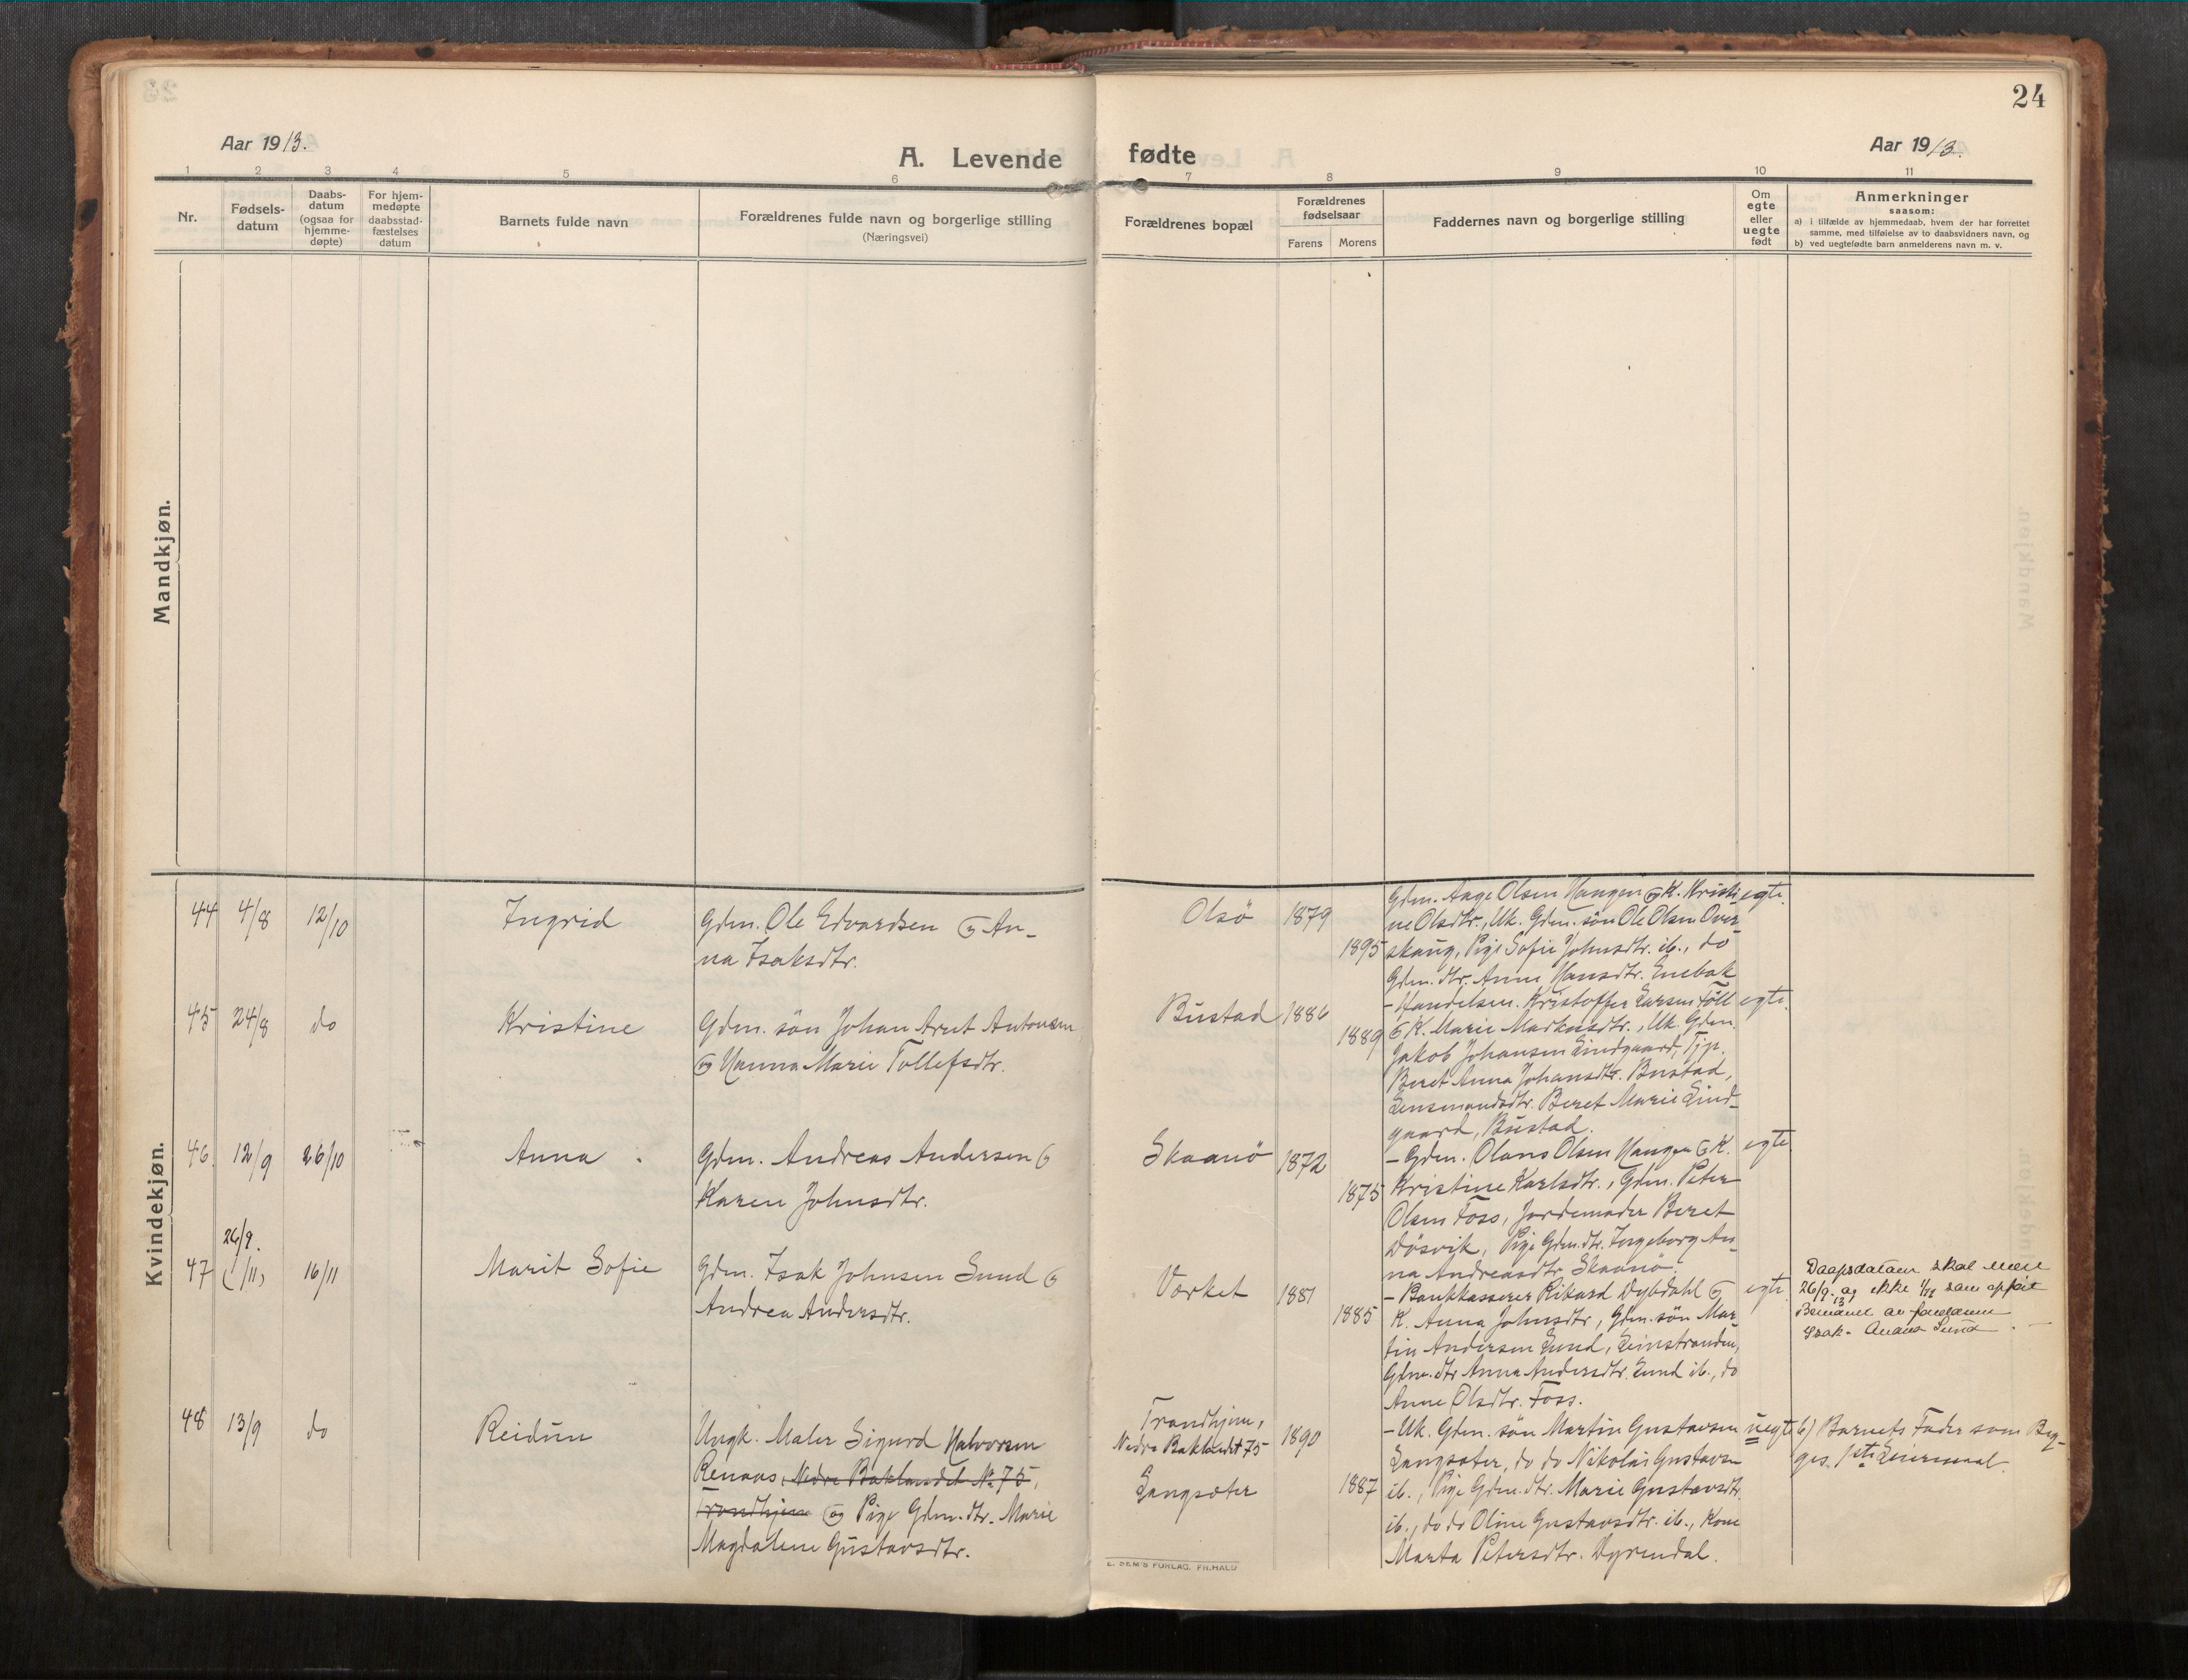 24
Aar 1913.
A. Levende
fødte
Aar 1913.
1 2 3 4 5 6 7 8 9 10 11
Nr.
Fødsels-
datum
Daabs-
datum
(ogsaa for
hjemme-
døpte)
For hjem-
medøpte
daabsstad-
fæstelses
datum
Barnets fulde navn
Forældrenes fulde navn og borgerlige stilling
(Næringsvei)
Forældrenes bopæl
Forældrenes
fødselsaar
Farens
Morens
Faddernes navn og borgerlige stilling
Om
egte
eller
uegte
født
Anmerkninger
saasom:
a) i tilfælde av hjemmedaab, hvem der har forrettet
samme, med tilføielse av to daabsvidners navn, og
b) ved uegtefødte barn anmelderens navn m. v.
Mandkjøn.
Kvindekjøn.
44 4/8 12/10 Ingrid
Gdm. Ole Edvardsen og An-
na Isaksdtr.
Olsö 1879
1895
Gdm. Aage Olsen Haugen og K. Kristi-
ne Olsdtr., Uk. Gdm. sön Ole Olsen Over-
skaug, Pige Sofie Johnsdtr. ib., do
Gdm. dtr. Anne Hansdtr. Enebak
egte
45 24/8 do Kristine
Gdm. sön Johan Arnt Antonsen
og Hanna Marie Tollefsdtr.
Bustad 1886
1889
- Handelsm. Kristoffer Larsen Föll
og K. Marie Markusdtr., Uk. Gdm.
Jakob Johansen Lindgaard, Tjp.
Beret Anna Johansdtr. Bustad,
Lensmandsdtr. Beret Marie Lind-
gaard, Bustad.
egte
46 12/9 26/10 Anna
Gdm. Andreas Andersen og
Karen Johnsdtr.
Skaanö 1872
1875
- Gdm. Olaus Olsen Haugen og K.
Kristine Karlsdtr., Gdm. Peter
Olsen Foss, Jordemoder Beret
Dösvik, Pige Gdm. dtr. Ingeborg An-
na Andreasdtr. Skaanö.
egte
26/9.
47 (1/11) 16/11 Marit Sofie
Gdm. Isak Johnsen Sund og
Andrea Andersdtr.
Værket 1881
1885
- Bankkasserer Rikard Dybdahl og
K. Anna Johnsdtr., Gdm. sön Mar-
tin Andersen Lund, Leinstranden,
Gdm. dtr. Anna Andersdtr. Lund ib., do
Anne Olsdtr. Foss.
egte
Daapsdatoen skal være
26/9. og ikke 1/11 som
Isak Sund
48 13/9 do Reidun
Ungk. Maler Sigurd Halvorsen
Renaas, Nedre Baklandet No 75,
Trondhjem og Pige Gdm. dtr. Marie
Magdalene Gustavsdtr.
Trondhjem,
Nedre Baklandet 75
Langsæter
1890
1887
- Uk. Gdm. sön Martin Gustavsen
Langsæter, do do Nikolai Gustavsen
ib., Pige Gdm. dtr. Marie Gustavsdtr.
ib., do do Oline Gustavsdtr. ib., Kone
Marta Petersdtr. Dyrendal.
uegte
b) Barnets Fader som Beg-
ges 1ste Leiermaal.
E. SEM'S FORLAG. FR.HALD